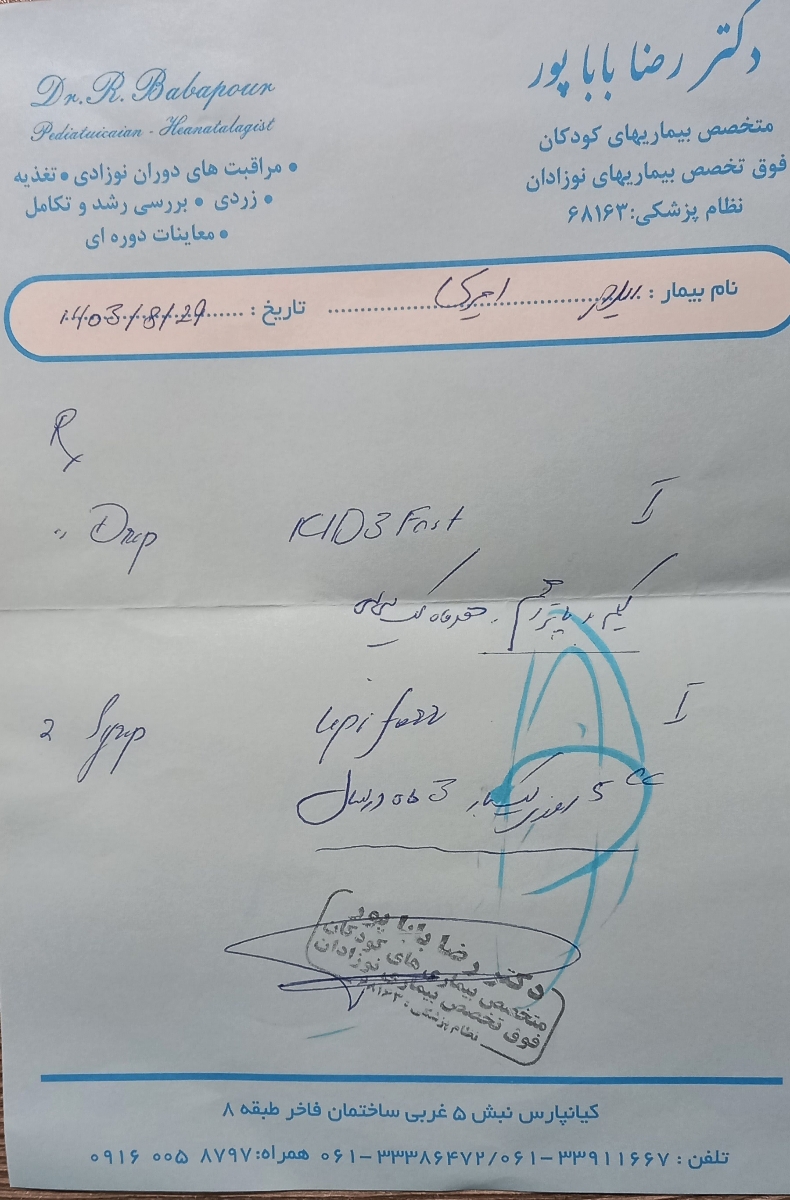 دکتر رضا بابا پور
متخصص بیماریهای کودکان
فوق تخصص بیماریهای نوزادان
نظام پزشکی: ۶۸۱۶۳
Dr. R. Babapour
Pediatuicaian - Heanatalagist
• مراقبت های دوران نوزادی • تغذیه
• زردی • بررسی رشد و تکامل
• معاینات دوره ای
نام بیمار :
تاریخ : 1403/8/29
Rx
Drop KID3 Fast I
2 Syrup Lipi farr I
5 cc روزی یکبار 3 ماه در سال
دکتر رضا بابا پور
متخصص بیماری های کودکان
فوق تخصص بیماری نوزادان
نظام پزشکی: ۶۸۱۶۳
کیانپارس نبش ۵ غربی ساختمان فاخر طبقه ۸
تلفن : ۰۶۱-۳۳۳۸۶۴۷۲/۰۶۱-۳۳۹۱۱۶۶۷ همراه: ۰۹۱۶ ۰۰۵ ۸۷۹۷